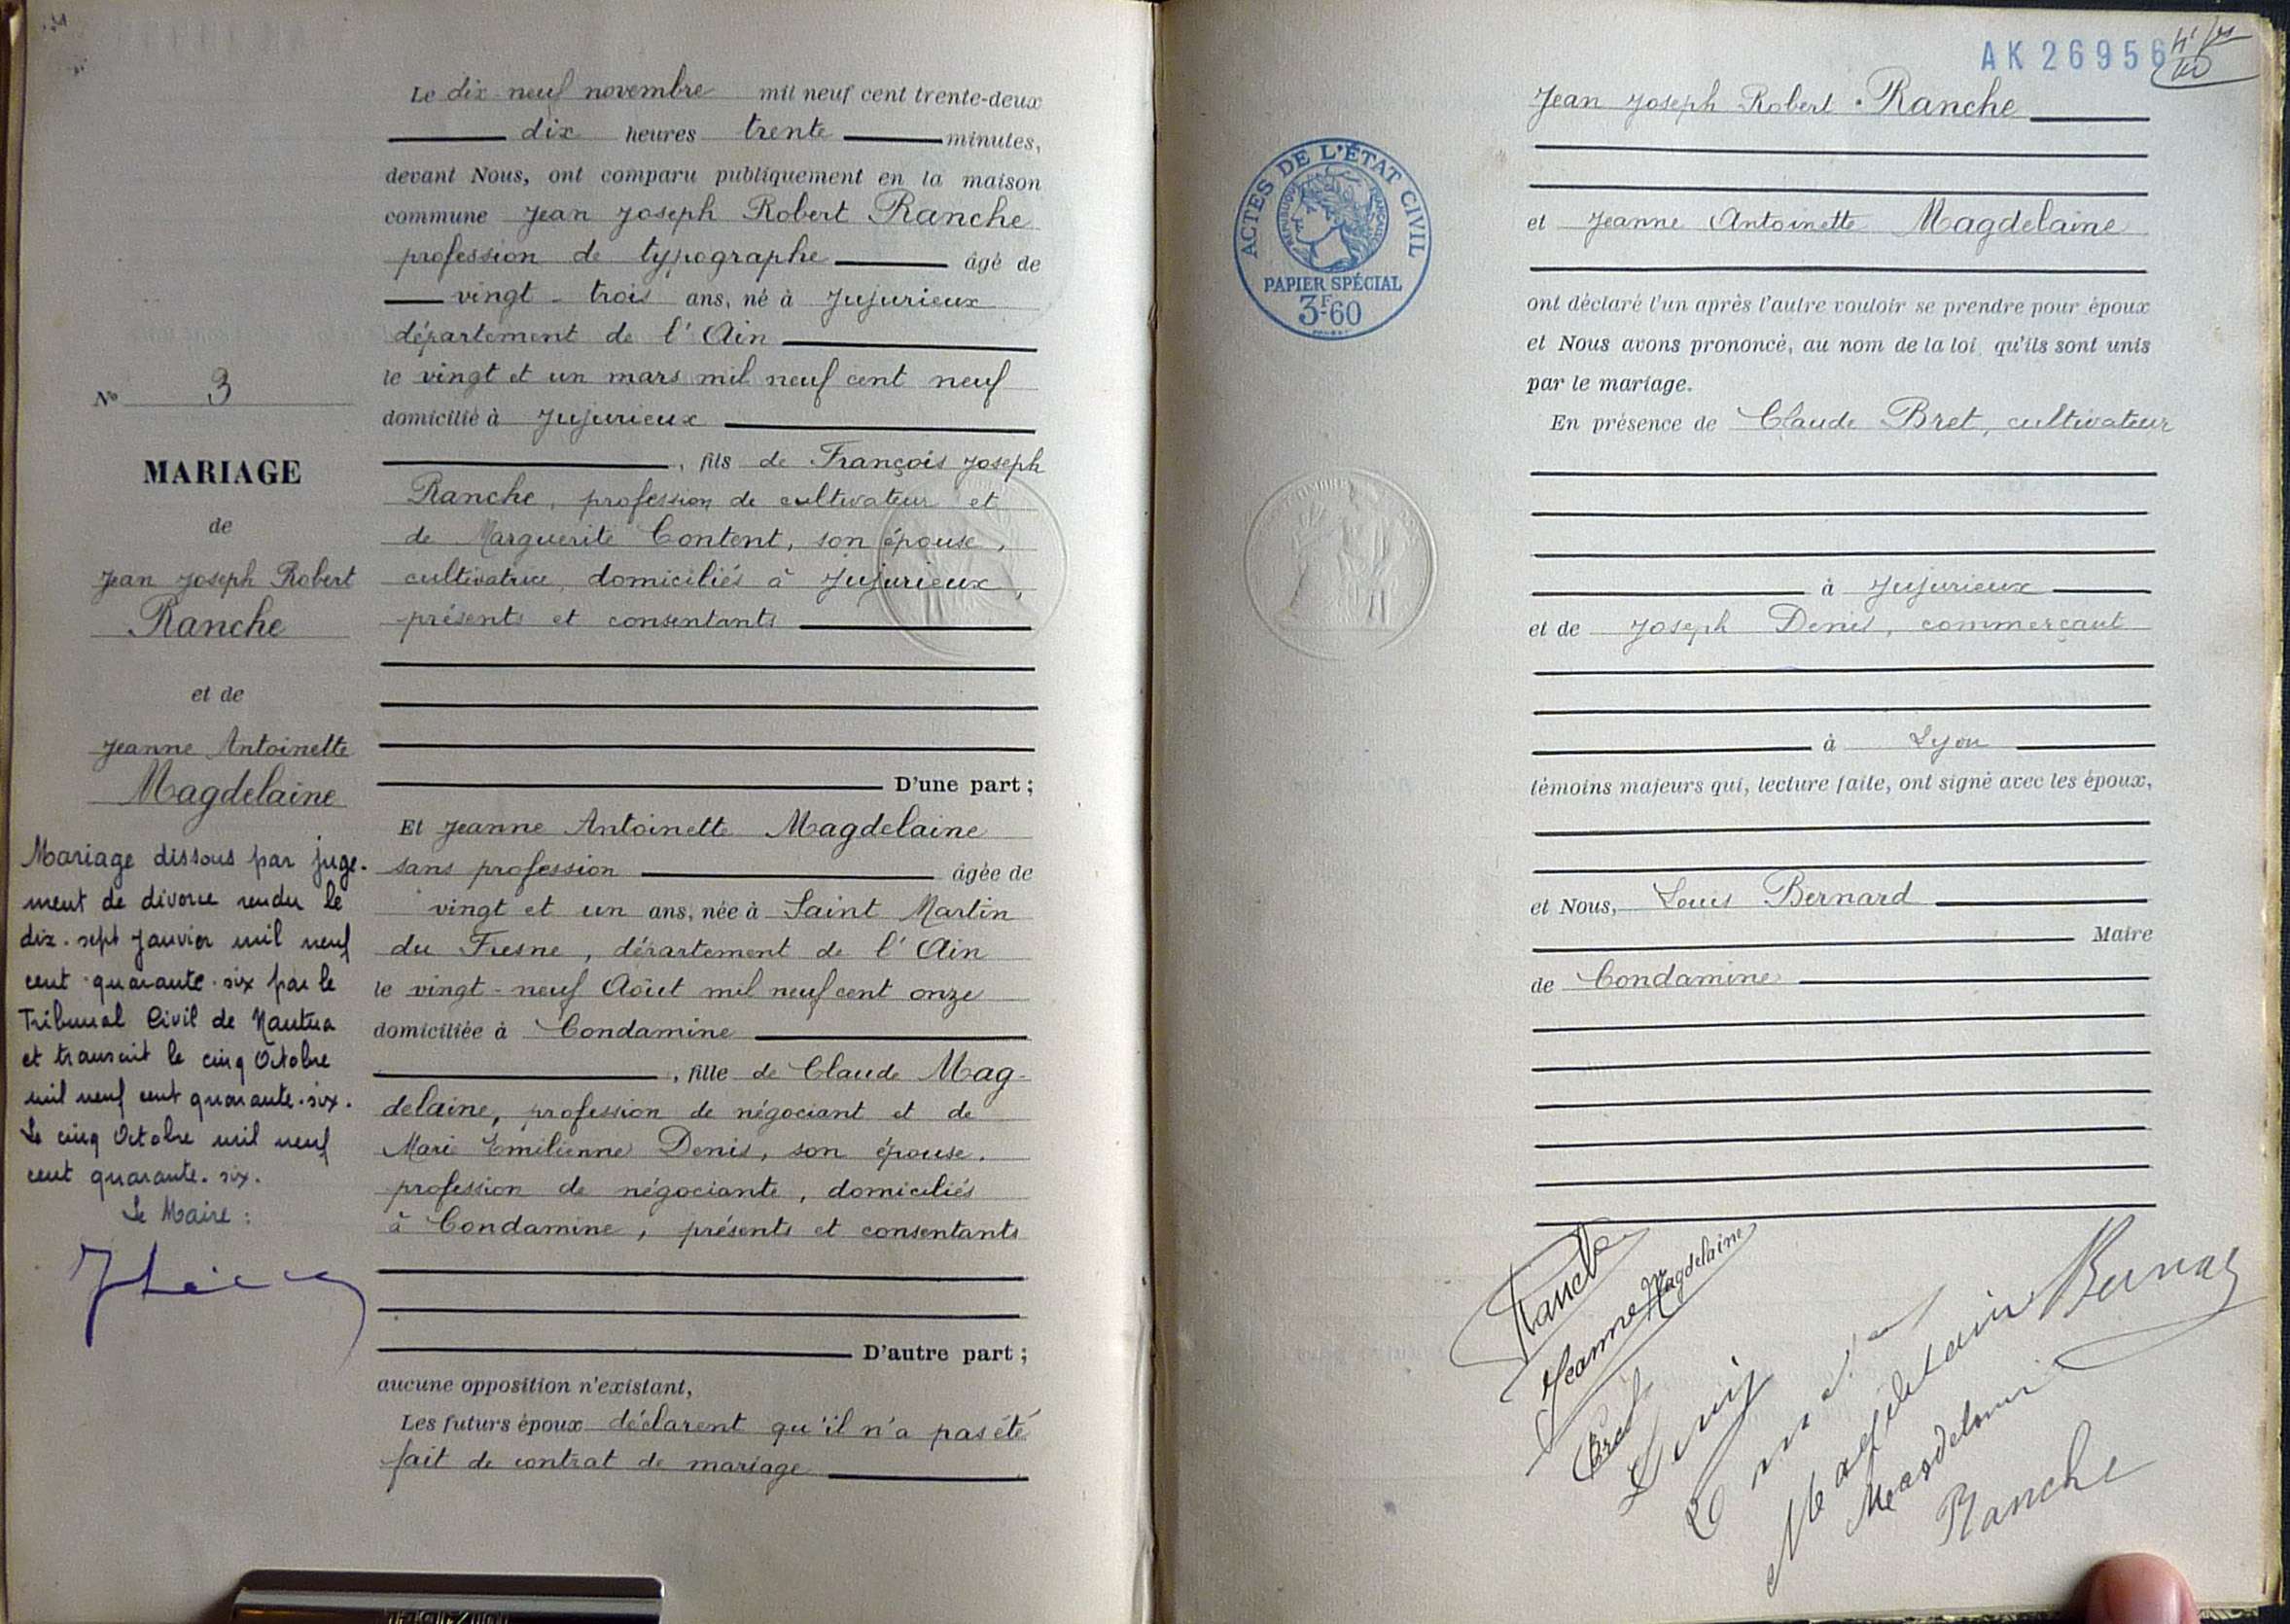 Le dix neuf novembre mil neuf cent trente-deux
dix heures trente minutes,
devant Nous, ont comparu publiquement en la maison
commune Jean Joseph Robert Ranche
profession de typographe âgé de
vingt-trois ans, né à Jujurieux
département de l'Ain
le vingt et un mars mil neuf cent neuf
domicilié à Jujurieux
, fils de François Joseph
Ranche, profession de cultivateur et
de Marguerite Content, son épouse,
cultivatrice, domiciliés à Jujurieux,
présents et consentants
D'une part ;
Et Jeanne Antoinette Magdelaine
sans profession âgée de
vingt et un ans, née à Saint Martin
du Fresne, département de l'Ain
le vingt-neuf Août mil neuf cent onze
domiciliée à Condamine
, fille de Claude Mag-
delaine, profession de négociant et de
Marie Emilienne Denis, son épouse.
profession de négociante, domiciliés
à Condamine, présents et consentants
D'autre part ;
aucune opposition n'existant,
Les futurs époux déclarent qu'il n'a pas été
fait de contrat de mariage
No 3
MARIAGE
de
Jean Joseph Robert
Ranche
et de
Jeanne Antoinette
Magdelaine
Mariage dissous par juge-
ment de divorce rendu le
dix-sept Janvier mil neuf
cent quarante-six par le
Tribunal Civil de Nantua
et transcrit le cinq Octobre
mil neuf cent quarante-six.
Le cinq Octobre mil neuf
cent quarante-six.
Le Maire :
AK 26956
Jean Joseph Robert Ranche
et Jeanne Antoinette Magdelaine
ont déclaré l'un après l'autre vouloir se prendre pour époux
et Nous avons prononcé, au nom de la loi, qu'ils sont unis
par le mariage.
En présence de Claude Bret, cultivateur
à Jujurieux
et de Joseph Denis, commerçant
à Lyon
témoins majeurs qui, lecture faite, ont signé avec les époux,
et Nous, Louis Bernard
Maire
de Condamine
ACTES DE L'ÉTAT CIVIL
RÉPUBLIQUE FRANÇAISE
PAPIER SPÉCIAL
3F.60
Ranche
Jeanne Magdelaine
Bret
Denis
Magdelaine
Bernard
Ranche